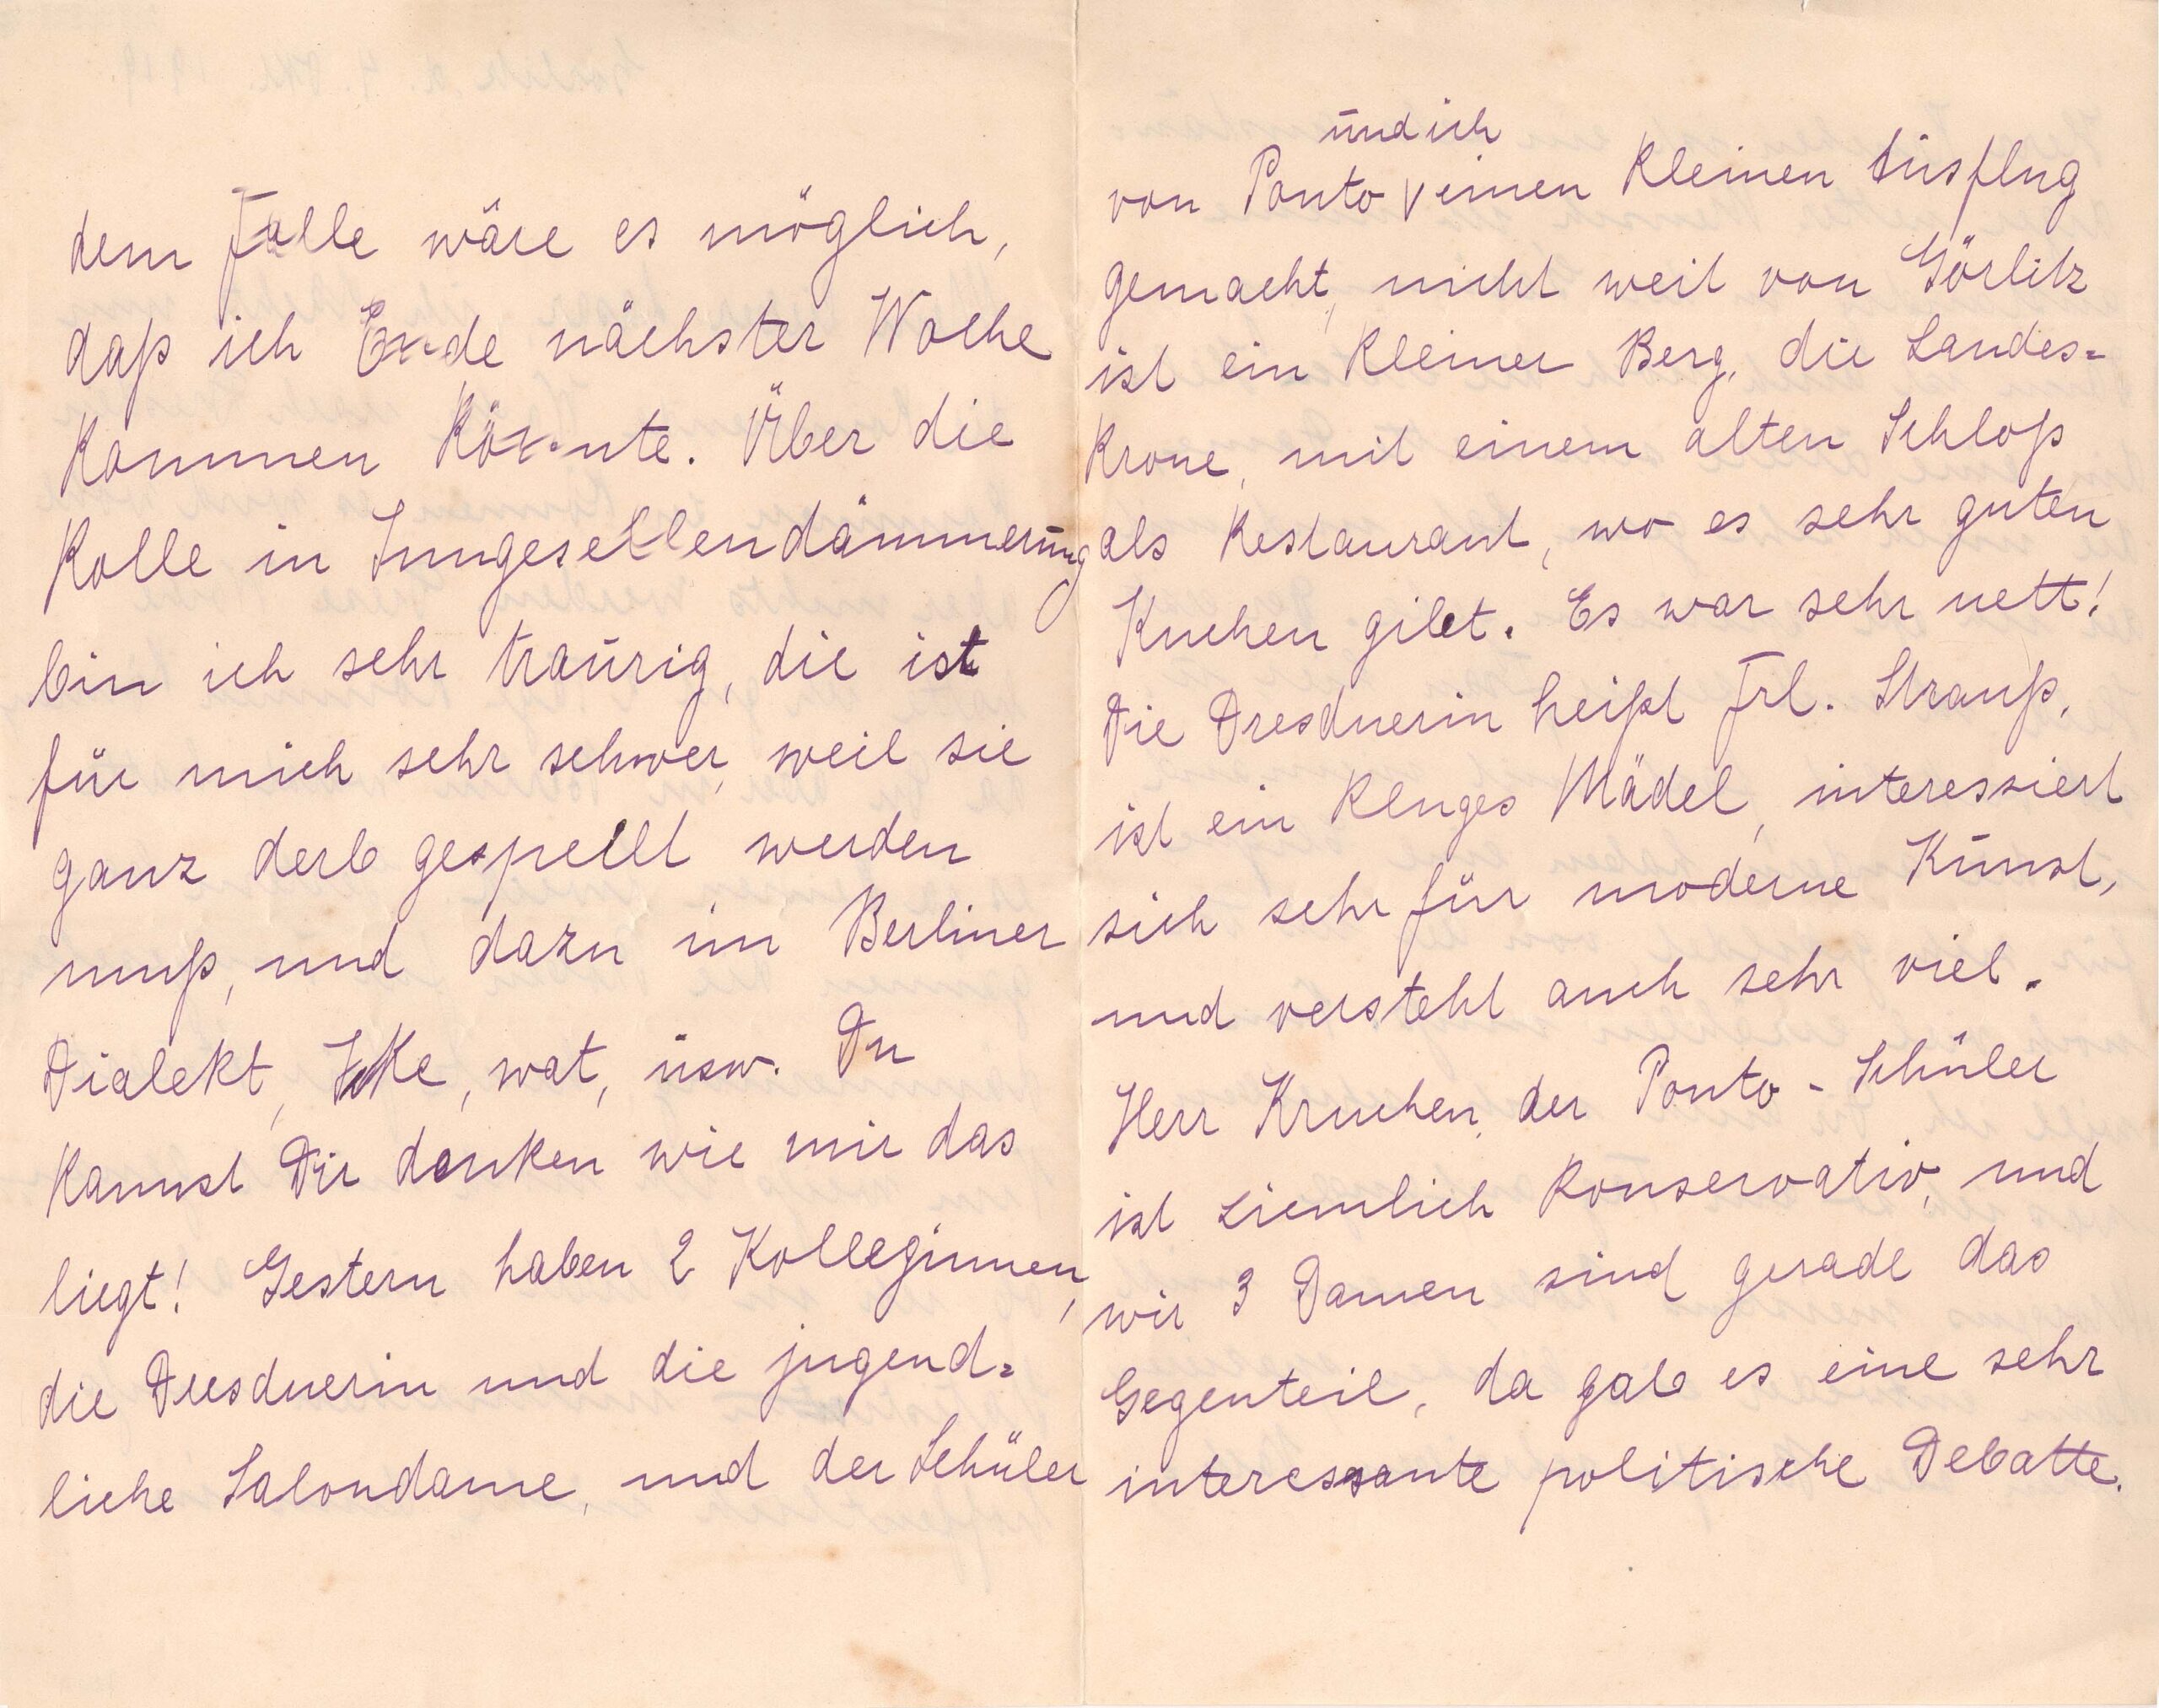 dem Falle wäre es möglich,
daß ich Ende nächster Woche
kommen könnte. Über die
Rolle in Jungesellendämmerung
bin ich sehr traurig, die ist
für mich sehr schwer, weil sie
ganz derb gespeilt werden
muß, und dazu im Berliner
Dialekt, Icke, wat, usw. Du
kannst Dir denken wie mir das
liegt! Gestern haben 2 Kolleginnen,
die Dresdnerin und die jugend=
liche Salondame, und der Schüler
und ich
von Ponto einen kleinen Ausflug
gemacht, nicht weit von Görlitz
ist ein kleiner Berg, die Landes=
krone, mit einem alten Schloß
als Restaurant, wo es sehr guten
Kuchen gibt. Es war sehr nett!
Die Dresdnerin heißt Frl. Strauß,
ist ein kluges Mädel, interessiert
sich sehr für moderne Kunst,
und versteht auch sehr viel.
Herr Kruchen, der Ponto-Schüler
ist ziemlich konservativ, und
wir 3 Damen sind gerade das
Gegenteil, da gab es eine sehr
interessante politische Debatte.